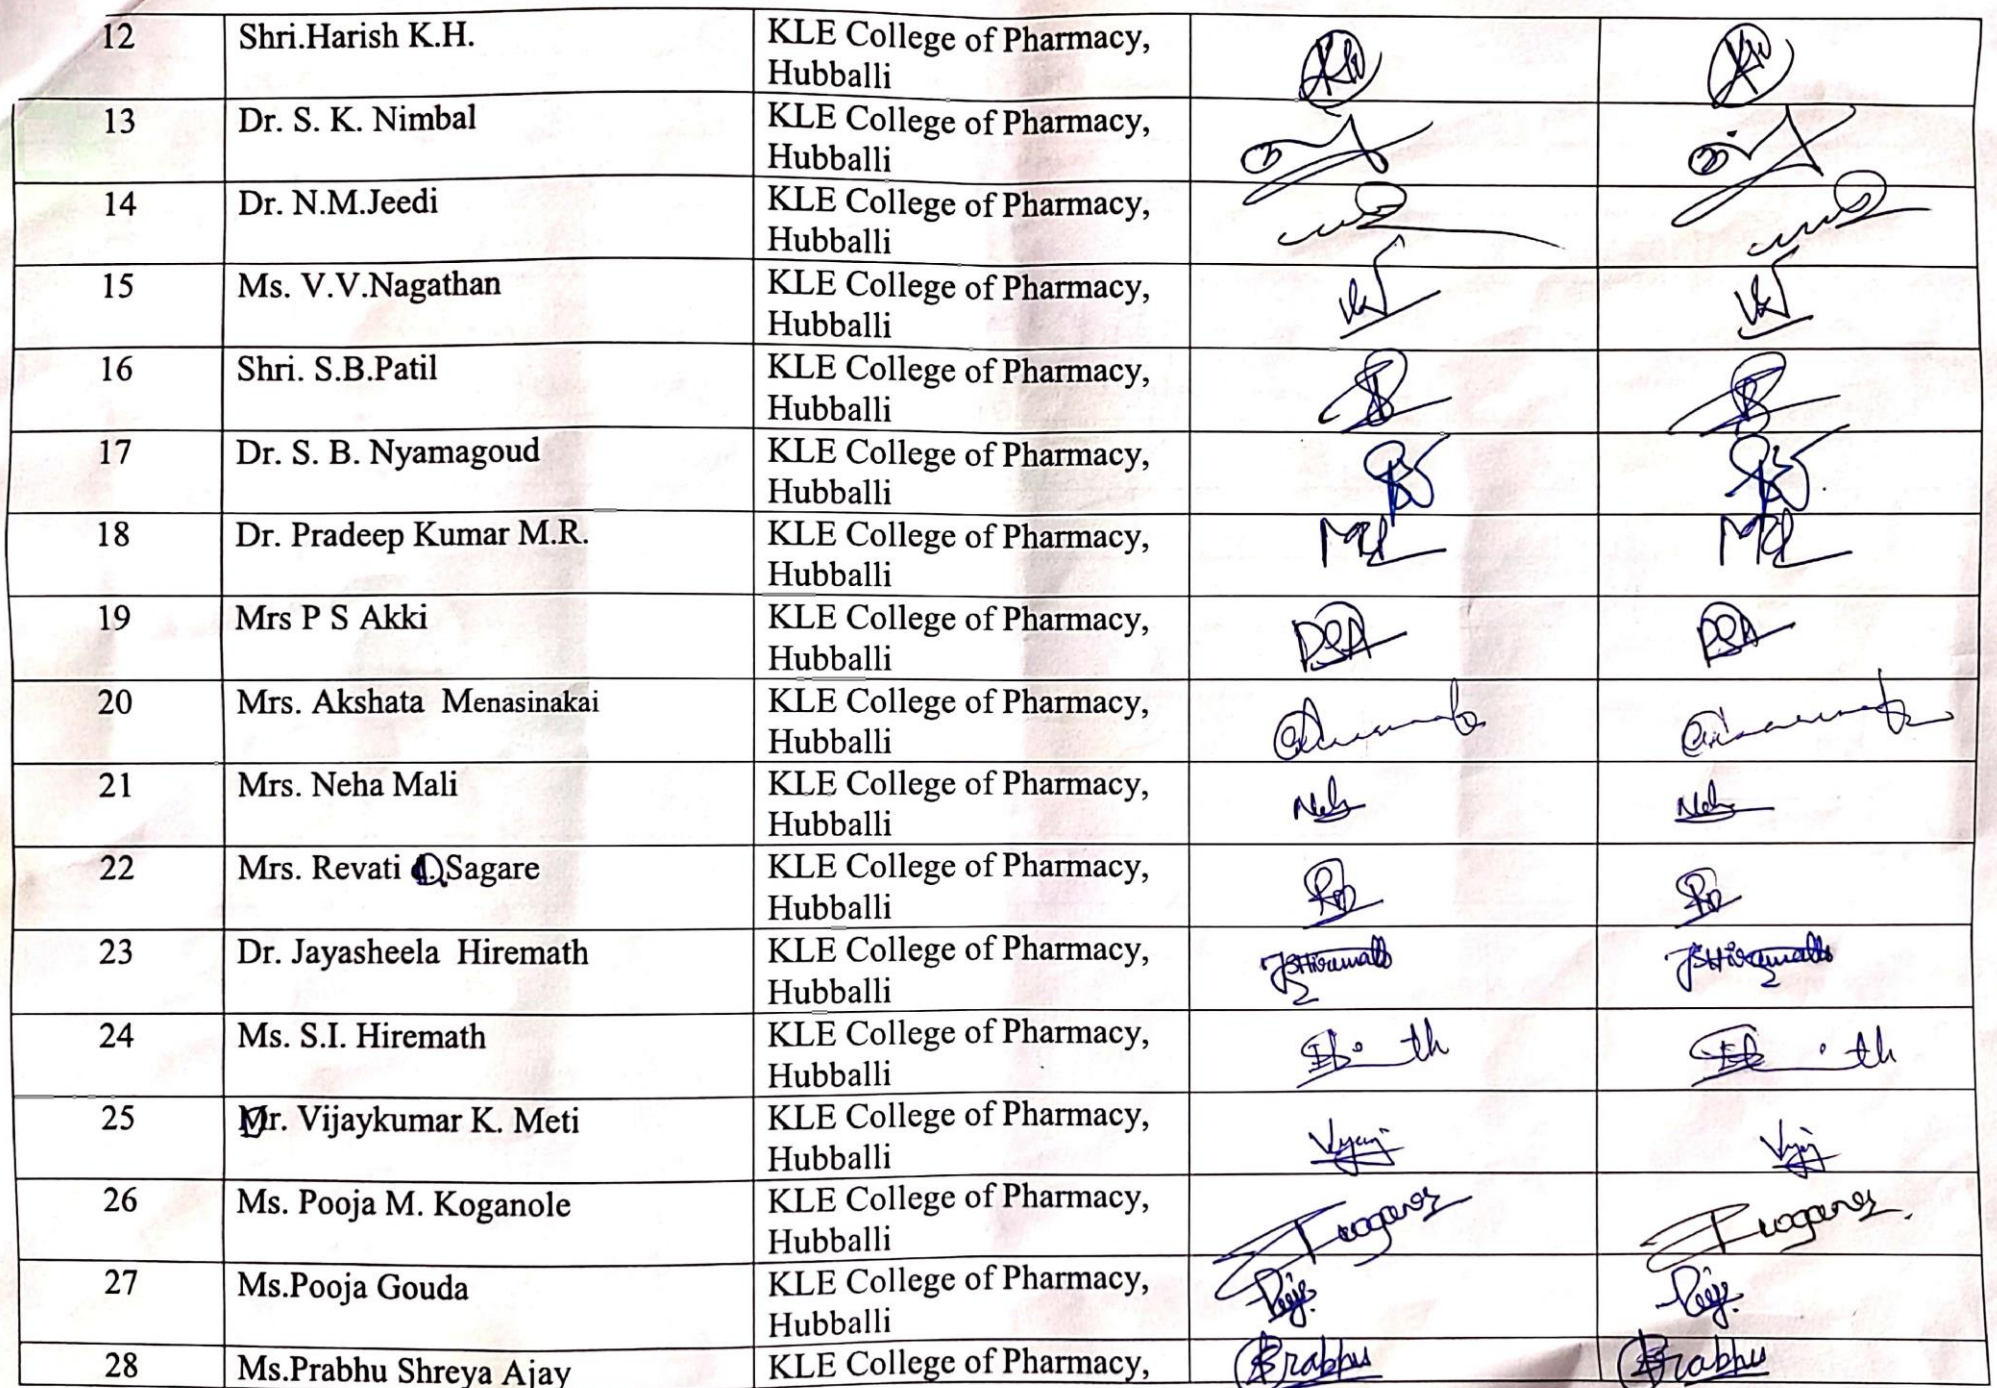 12 Shri.Harish K.H. KLE College of Pharmacy,
Hubballi
13 Dr. S. K. Nimbal KLE College of Pharmacy,
Hubballi
14 Dr. N.M.Jeedi KLE College of Pharmacy,
Hubballi
15 Ms. V.V.Nagathan KLE College of Pharmacy,
Hubballi
16 Shri. S.B.Patil KLE College of Pharmacy,
Hubballi
17 Dr. S. B. Nyamagoud KLE College of Pharmacy,
Hubballi
18 Dr. Pradeep Kumar M.R. KLE College of Pharmacy,
Hubballi
19 Mrs P S Akki KLE College of Pharmacy,
Hubballi PSA PSA
20 Mrs. Akshata Menasinakai KLE College of Pharmacy,
Hubballi
21 Mrs. Neha Mali KLE College of Pharmacy,
Hubballi
22 Mrs. Revati Sagare KLE College of Pharmacy,
Hubballi
23 Dr. Jayasheela Hiremath KLE College of Pharmacy,
Hubballi
24 Ms. S.I. Hiremath KLE College of Pharmacy,
Hubballi
25 Mr. Vijaykumar K. Meti KLE College of Pharmacy,
Hubballi
26 Ms. Pooja M. Koganole KLE College of Pharmacy,
Hubballi
27 Ms.Pooja Gouda KLE College of Pharmacy,
Hubballi
28 Ms.Prabhu Shreya Ajay KLE College of Pharmacy, Prabhu Prabhu